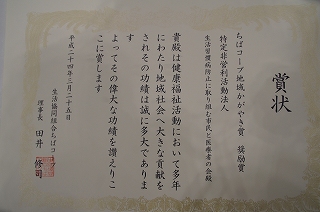 賞状
ちばコープ地域かがやき賞　奨励賞
特定非営利活動法人
生活習慣病防止に取り組む市民と医療者の会殿
貴殿は健康福祉活動において多年
にわたり地域社会へ大きな貢献を
されその功績は誠に多大でありま
すよってその偉大な功績を讃えりこ
こに賞します
平成二十四年三月二十五日
生活協同組合ちばコープ
理事長　田井　修司